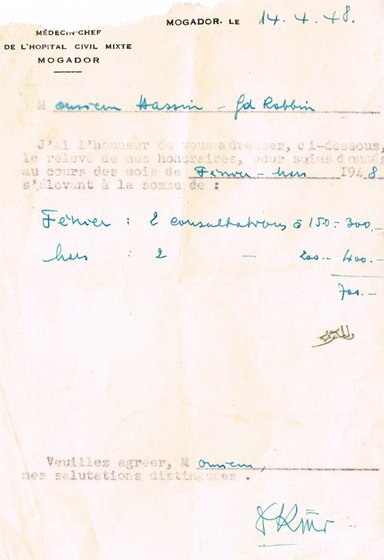 MOGADOR, LE 14.4.48.
MÉDECIN-CHEF
DE L'HOPITAL CIVIL MIXTE
MOGADOR
Monsieur Hassin - Gd Rabbin
J'ai l'honneur de vous adresser, ci-dessous,
le relevé de mes honoraires, pour soins donnés
au cours des mois de Février - Mars 1948
s'élevant à la somme de :
Février : 2 consultations à 150.- 300.-
Mars : 2 — 200.- 400.-
700.-
Veuillez agréer, Monsieur,
mes salutations distinguées .